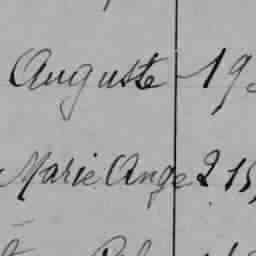 Auguste 19
Marie Ange 2 15